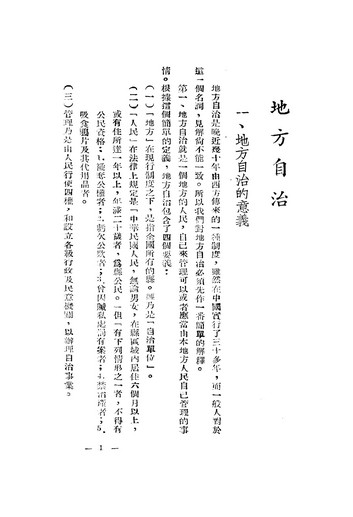 地方自治
一、地方自治的意義
地方自治是晚近幾十年由西方傳來的一種制度，雖然在中國實行了三十多年，而一般人對於
這一個名詞，見解尙不能一致。所以我們對地方自治必須先作一番簡單的解釋。
第一、地方自治就是一個地方的人民，自己來管理可以或者應當由本地方人民自己管理的事
情。根據這個簡單的定義，地方自治包含了四個要義：
（一）「地方」在現行制度之下，是指全國所有的縣。縣乃是「自治單位」。
（二）「人民」在法律上規定是「中華民國人民，無論男女，在縣區域內居住六個月以上，
或有住所達一年以上，年滿二十歲者，爲縣公民。」但「有下列情形之一者，不得有
公民資格：1.褫奪公權者；2.虧欠公款者；3.曾因贓私處罰有案者；4.禁治產者；5.
吸食鴉片及其代用品者。
（三）管理乃是由人民行使四權，和設立各級行政及民意機關，以辦理自治事業。
— 1 —